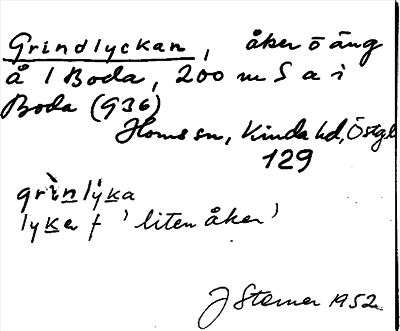 Grindlyckan, åker o äng
å 1 Boda, 200 m S a i
Boda (936)
Horns sn, Kinda hd, Östgl
129
grìnlỳka
lyker f 'liten åker'
J Sterner 1952